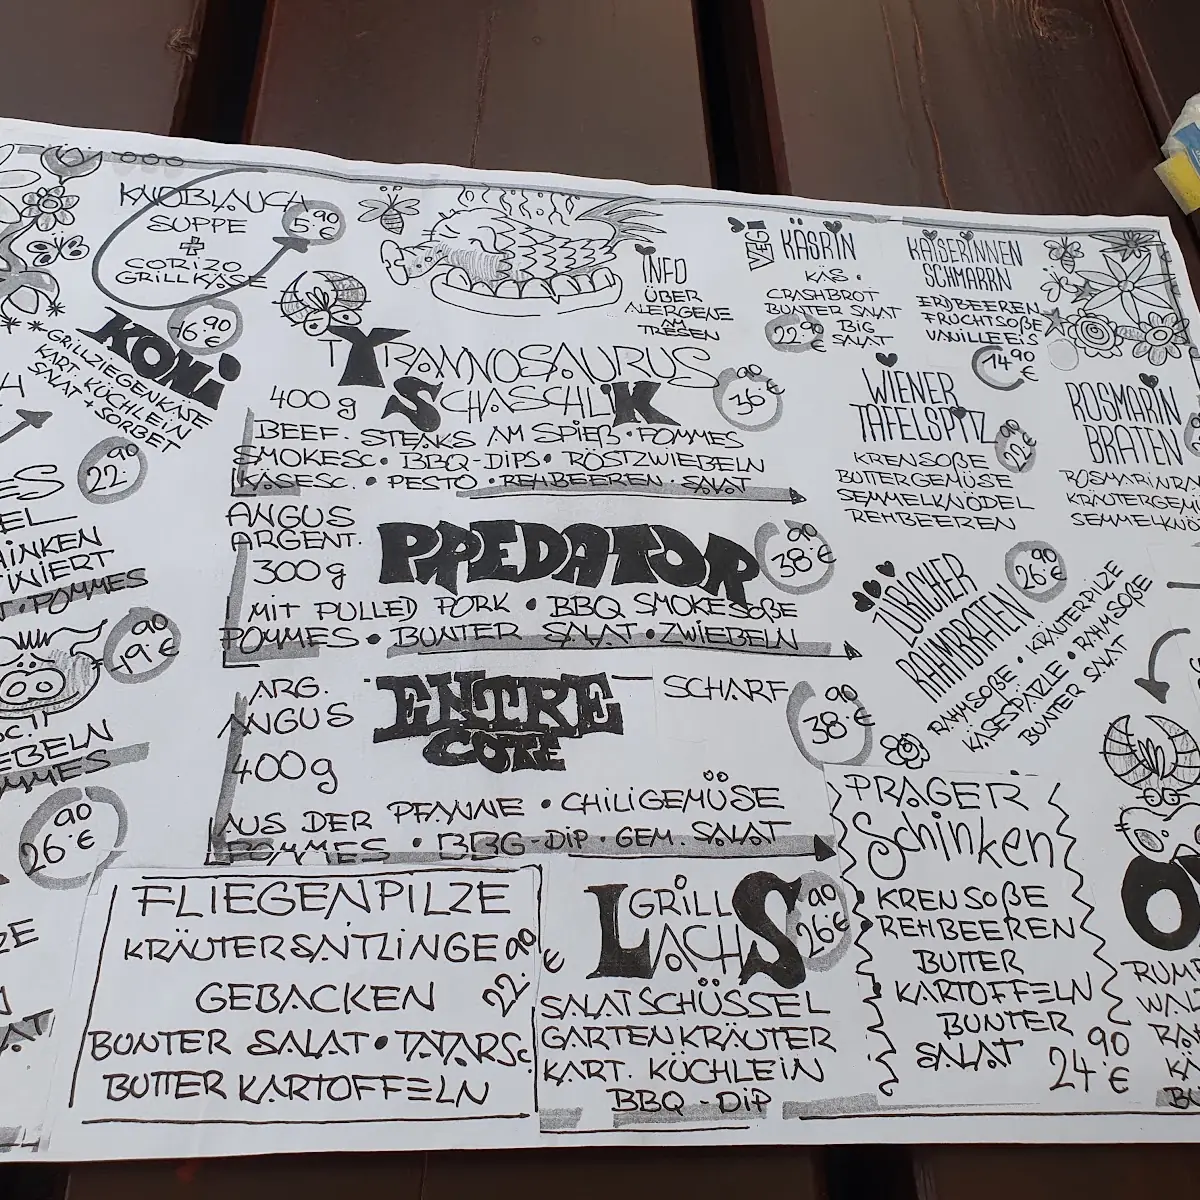 KNOBLAUCH
SUPPE
+
CORIZO
GRILLKÄSE
5.90 €
KOMI
16.90
GRILLZIEGENKÄSE
KART. KÜCHLEIN
SALAT + SORBET
22.90
HINKEN
POMMES
19.90 €
EBELN
MMES
26.90 €
TYRANNOSAURUS
400 g SCHASCHLIK
36.90 €
BEEF. STEAKS AM SPIEß • POMMES
SMOKESC. • BBQ-DIPS • RÖSTZWIEBELN
KÄSESC. • PESTO • REHBEEREN • SALAT
ANGUS
ARGENT.
300 g
PREDATOR
38.90 €
MIT PULLED PORK • BBQ SMOKESOßE
POMMES • BUNTER SALAT • ZWIEBELN
ARG.
ANGUS
400 g
ENTRE
COTE
SCHARF
38.90 €
AUS DER PFANNE • CHILIGEMÜSE
POMMES • BBG-DIP • GEM. SALAT
FLIEGENPILZE
KRÄUTERSAITLINGE
GEBACKEN
22.90 €
BUNTER SALAT • TATARSC.
BUTTER KARTOFFELN
GRILL
LACHS
26.90 €
SALATSCHÜSSEL
GARTENKRÄUTER
KART. KÜCHLEIN
BBQ-DIP
INFO
ÜBER
ALERGENE
AM
TRESEN
VEGI
KÄSRIN
KÄS •
CRASHBROT
BUNTER SALAT
BIG
SALAT
22.90 €
KAISERINNEN
SCHMARRN
ERDBEEREN
FRUCHTSOßE
VANILLEEIS
14.90 €
WIENER
TAFELSPITZ
22.90 €
KRENSOßE
BUTTERGEMÜSE
SEMMELKNÖDEL
REHBEEREN
ROSMARIN
BRATEN
ROSMARINRA
KRÄUTERGEM
SEMMELKNÖ
ZÜRICHER
RAHMBRATEN
26.90 €
RAHMSOßE • KRÄUTERPILZE
KÄSESPÄTZLE • RAHMSOßE
BUNTER SALAT
PRAGER
Schinken
• KRENSOßE
• REHBEEREN
BUTTER
• KARTOFFELN
BUNTER
SALAT
24.90 €
RUMP